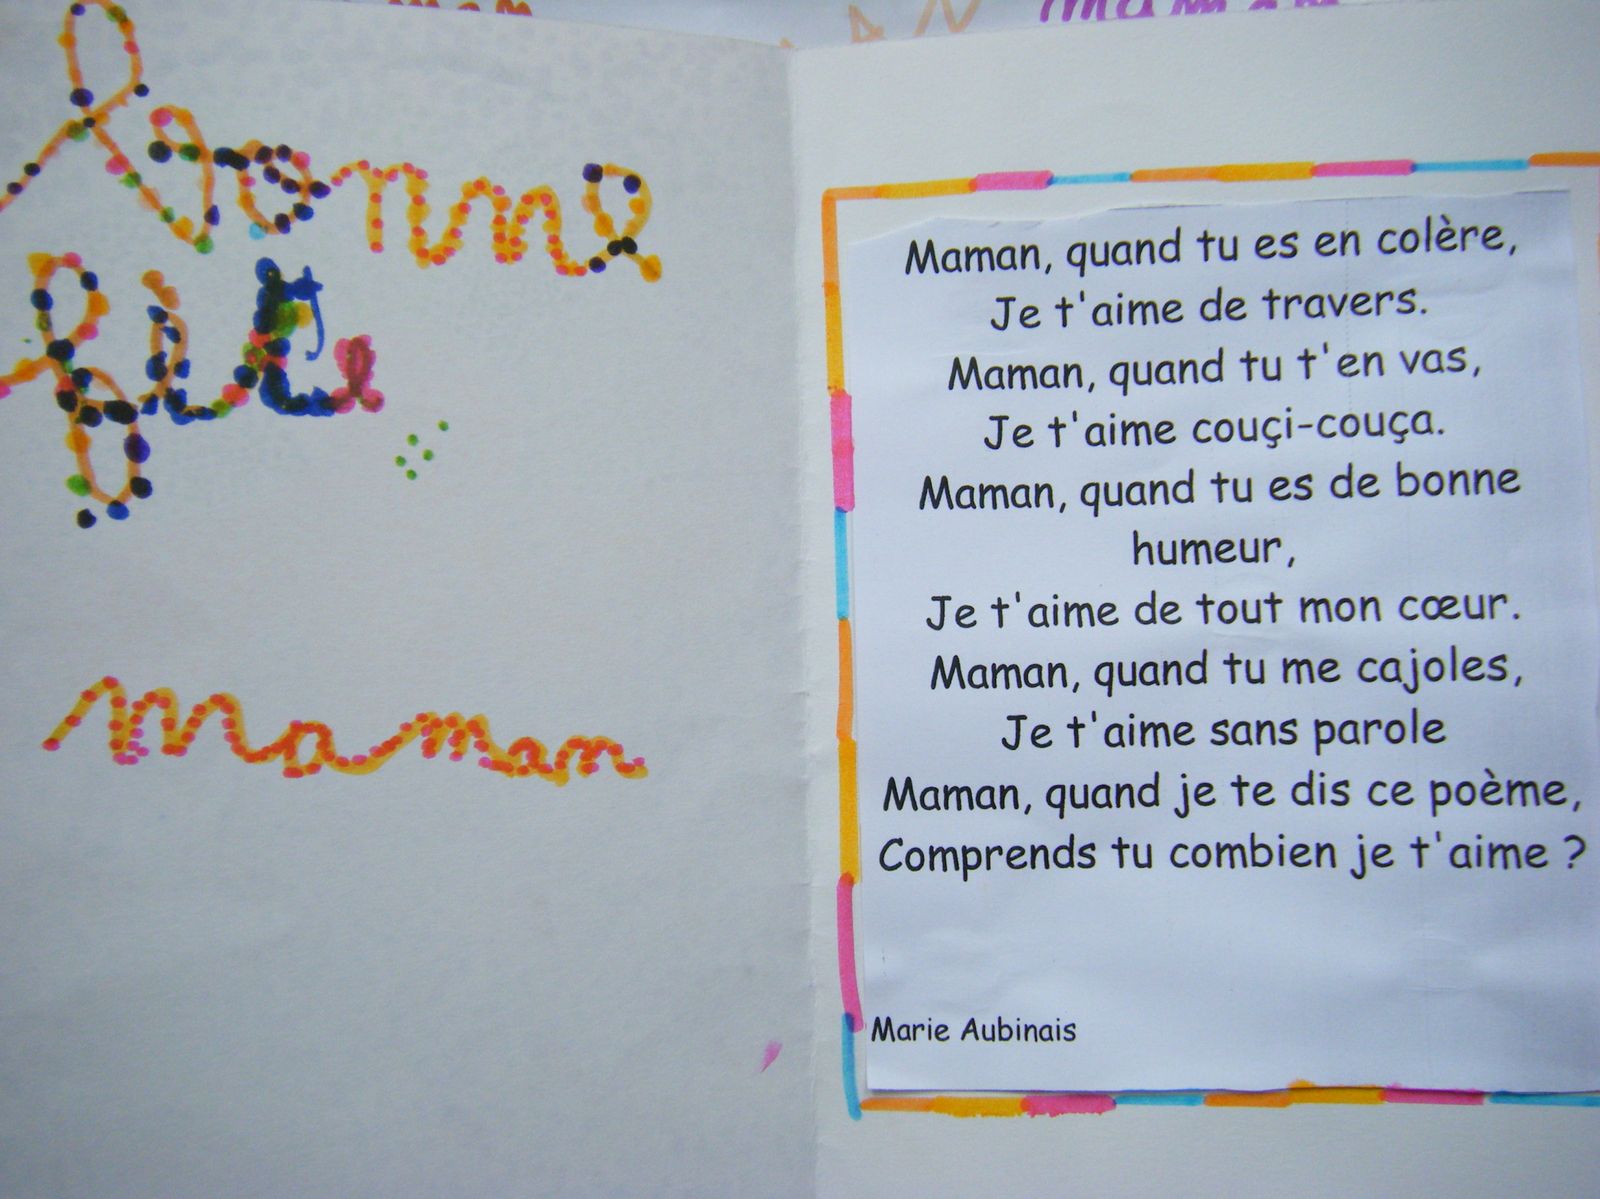 maman
bonne
fête
maman
Maman, quand tu es en colère,
Je t'aime de travers.
Maman, quand tu t'en vas,
Je t'aime couçi-couça.
Maman, quand tu es de bonne
humeur,
Je t'aime de tout mon cœur.
Maman, quand tu me cajoles,
Je t'aime sans parole
Maman, quand je te dis ce poème,
Comprends tu combien je t'aime ?
Marie Aubinais